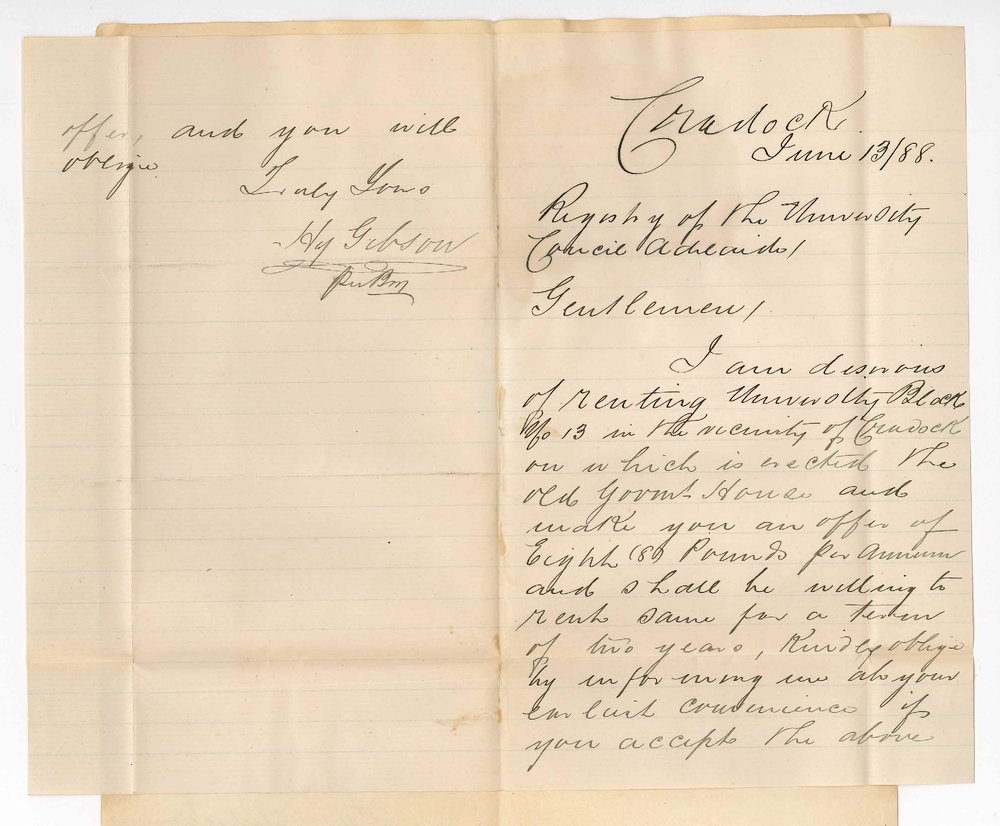 Cradock
June 13/88.
Registry of the University
Concil Adelaide/
Gentlemen/
I am desirous
of renting University Block
No 13 in the vicinity of Cradock
on which is erected the
old Govmt House and
make you an offer of
Eight (8) Pounds per Annum
and shall be willing to
rent same for a term
of two years, Kindly oblige
by informing me at your
earliest convenience if
you accept the above
offer, and you will
oblige
Truly Yours
Hy Gibson